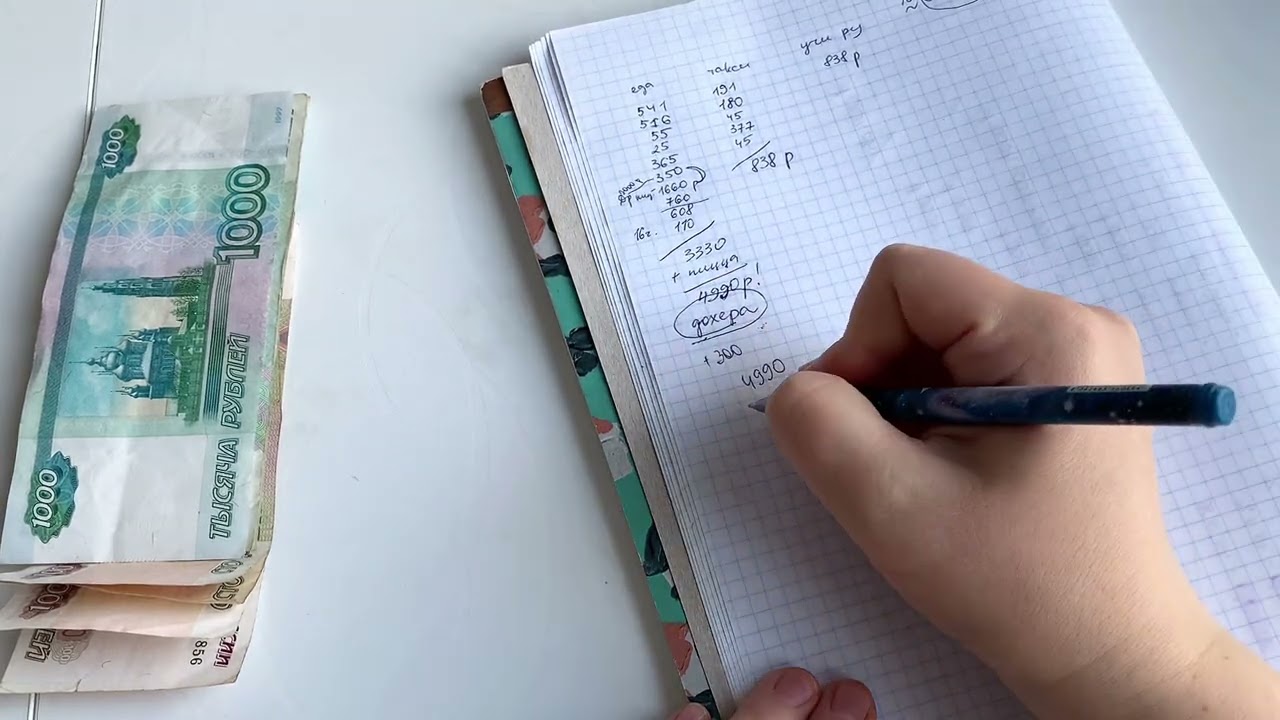 еда
541
516
55
25
365
350
1660 р
760
608
16г. 170
3330
+ пицца
4990р!
дохера
+300
4990
такси
191
180
45
377
45
838 р
учи ру
838 р
1000
1000
ТЫСЯЧА РУБЛЕЙ
1000
1997
856